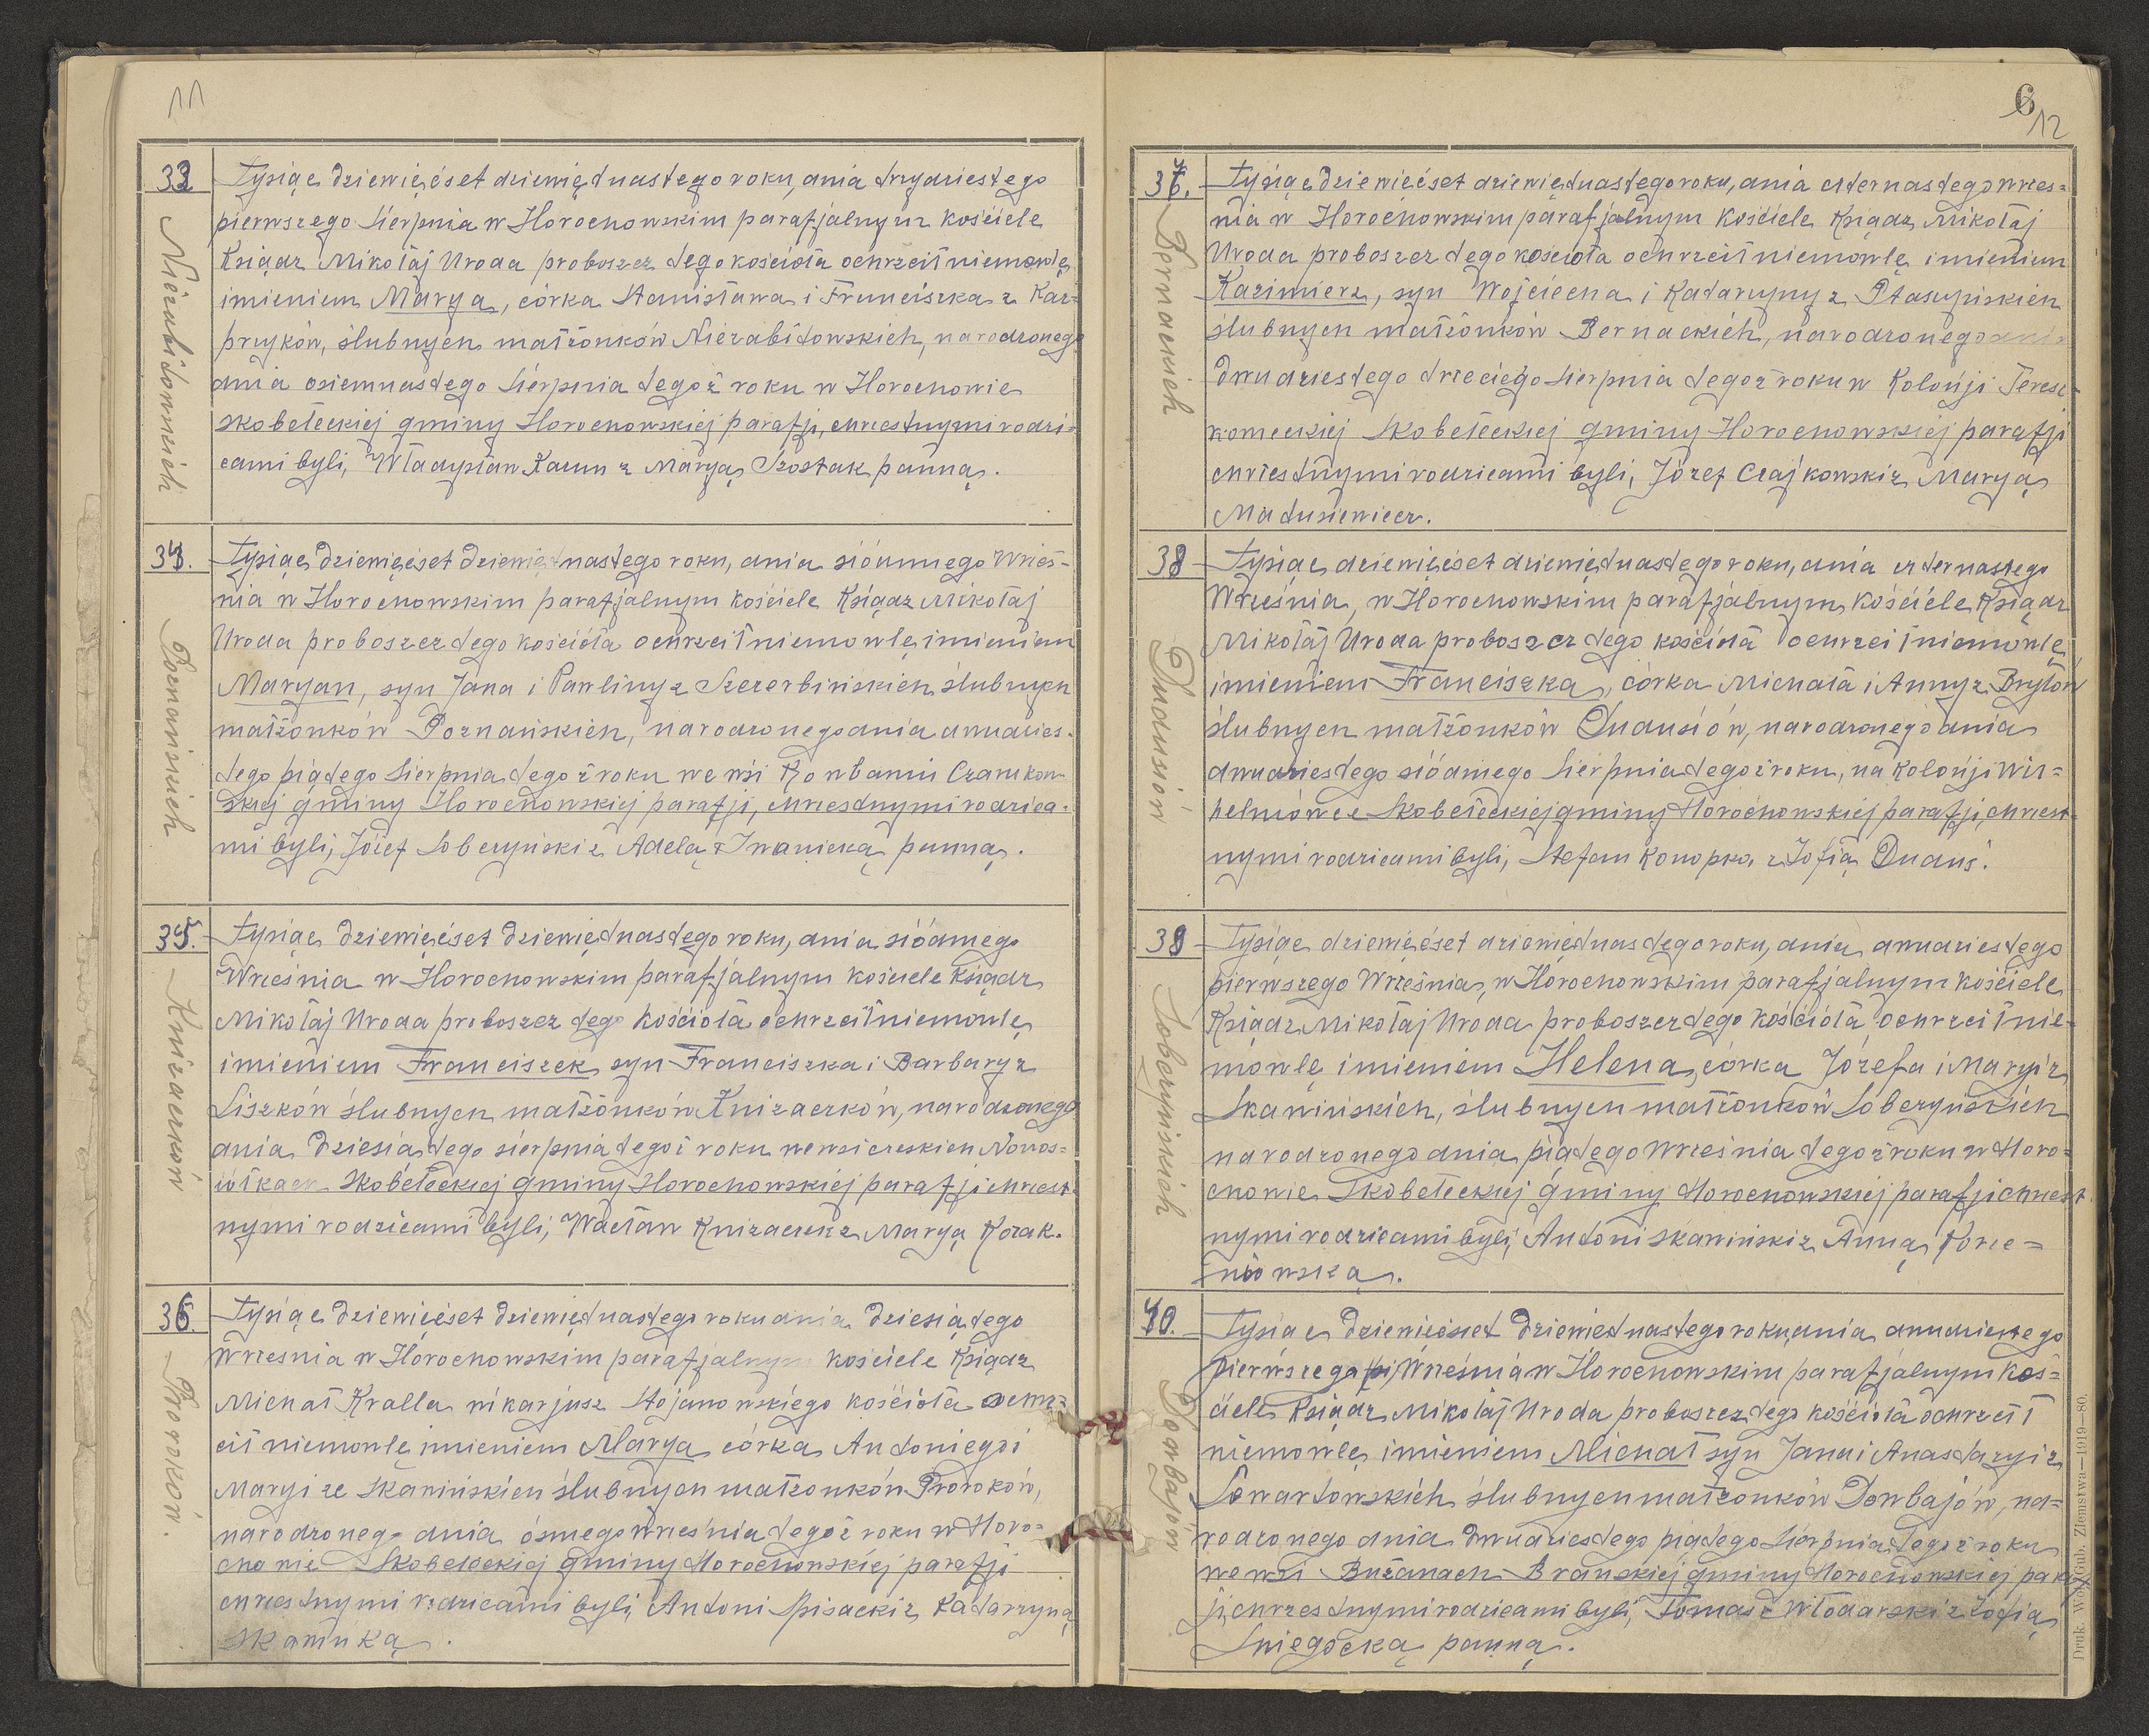 11
33
Tysiąc dziewięćset dziewiętnastego roku, dnia trzydziestego
pierwszego Sierpnia w Horochowskim parafjalnym kościele
Ksiądz Mikołaj Uroda proboszcz tego kościoła ochrzcił niemowlę
imieniem Marya, córka Stanisława i Franciszka z Kaz=
przyków, ślubnych małżonków Niezabitowskich, narodzonego
dnia osiemnastego Sierpnia tegoż roku w Horochowie
Skobełeckiej gminy Horochowskiej parafji, chrzestnymi rodzi=
cami byli, Władysław Kazun z Maryą Szostak panną.
Niezabitowskich
34.
Tysiąc dziewięćset dziewiętnastego roku, dnia siódmego Wrześ=
nia w Horochowskim parafjalnym kościele Ksiądz Mikołaj
Uroda proboszcz tego kościoła ochrzcił niemowlę imieniem
Maryan, syn Jana i Pawliny z Szczerbińskich ślubnych
małżonków Poznańskich, narodzonego dnia dwudzies=
tego piątego Sierpnia tegoż roku we wsi Kowbani Czarukow
skiej gminy Horochowskiej parafji, chrzestnymi rodzica=
mi byli, Józef Soberyński z Adelą Iwanicką panną.
Poznańskich
35.
Tysiąc dziewięćset dziewiętnastego roku, dnia siódmego
Września w Horochowskim parafjalnym kościele Ksiądz
Mikołaj Uroda proboszcz tego kościoła ochrzcił niemowlę
imieniem Franciszek syn Franciszka i Barbary z
Liszków ślubnych małżonków Knizaczków, narodzonego
dnia dziesiątego sierpnia tegoż roku we wsi czeskich Nowos=
iółkach Skobełeckiej gminy Horochowskiej parafji chrzest=
nymi rodzicami byli, Wacław Knizaczek z Maryą Kozak.
Knizaczków
36.
Tysiąc dziewięćset dziewiętnastego roku dnia dziesiątego
Września w Horochowskim parafjalnym kościele Ksiądz
Michał Kralla wikarjusz Stojanowskiego kościoła ochrz=
cił niemowlę imieniem Marya córka Antoniego i
Maryi ze Skawińskich ślubnych małżonków Proroków,
narodzonego dnia ósmego Września tegoż roku w Horo=
chowie Skobełeckiej gminy Horochowskiej parafji
chrzestnymi rodzicami byli, Antoni Spisacki z Katarzyną
Skawińką.
Proroków.
6
12
37.
Tysiąc dziewięćset dziewiętnastego roku, dnia czternastego Wrześ=
nia w Horochowskim parafjalnym Kościele Ksiądz Mikołaj
Uroda proboszcz tego kościoła ochrzcił niemowlę imieniem
Kazimierz, syn Wojciecha i Katarzyny z Ptaszyńskich
ślubnych małżonków Bernackich, narodzonego dnia
dwudziestego trzeciego Sierpnia tegoż roku w Kolonji Teresz=
kowieckiej Skobełeckiej gminy Horochowskiej parafji
chrzestnymi rodzicami byli, Józef Czajkowski z Maryą
Matusiewicz.
Bernackich
38
Tysiąc dziewięćset dziewiętnastego roku, dnia czternastego
Września, w Horochowskim parafjalnym Kościele Ksiądz
Mikołaj Uroda proboszcz tego kościoła ochrzcił niemowlę
imieniem Franciszka, córka Michała i Anny z Brylów
ślubnych małżonków Dudusiów, narodzonego dnia
dwudziestego siódmego Sierpnia tegoż roku, na Kolonji Wil=
helmówce Skobełeckiej gminy Horochowskiej parafji, chrzest=
nymi rodzicami byli, Stefan Konopka z Zofią Duduś.
Dudusiów
39
Tysiąc dziewięćset dziewiętnastego roku, dnia dwudziestego
pierwszego Września, w Horochowskim parafjalnym Kościele
Ksiądz Mikołaj Uroda proboszcz tego kościoła ochrzcił nie=
mowlę imieniem Helena, córka Józefa i Maryi z
Skawińskich, ślubnych małżonków Soberyńskich
narodzonego dnia piątego Września tegoż roku w Horo=
chowie Skobełeckiej gminy Horochowskiej parafji chrzest
nymi rodzicami byli, Antoni Skawiński z Anną
Soberyńskich
40.
Tysiąc dziewięćset dziewiętnastego roku, dnia dwudziestego
pierwszego Września w Horochowskim parafjalnym Koś=
ciele Ksiądz Mikołaj Uroda proboszcz tego kościoła ochrzcił
niemowlę imieniem Michał syn Jana i Anastazyi z
Lowartowskich ślubnych małżonków Dowbajów, na=
rodzonego dnia dwudziestego piątego Sierpnia tegoż roku
we wsi Bużanach Brańskiej gminy Horochowskiej paraf
ji, chrzestnymi rodzicami byli, Tomasz Włodarski z Zofią
Sniegocką panną.
Dowbajów
Druk. Woł. Gub. Ziemstwa—1919—80.